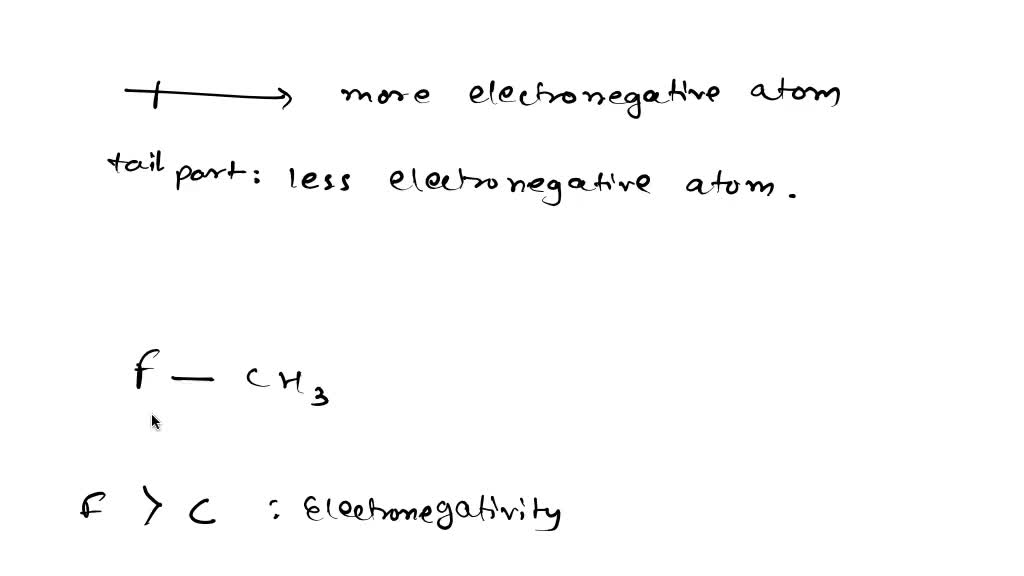 more electronegative atom
tail part: less electronegative atom.
F — CH3
F > C : Electronegativity